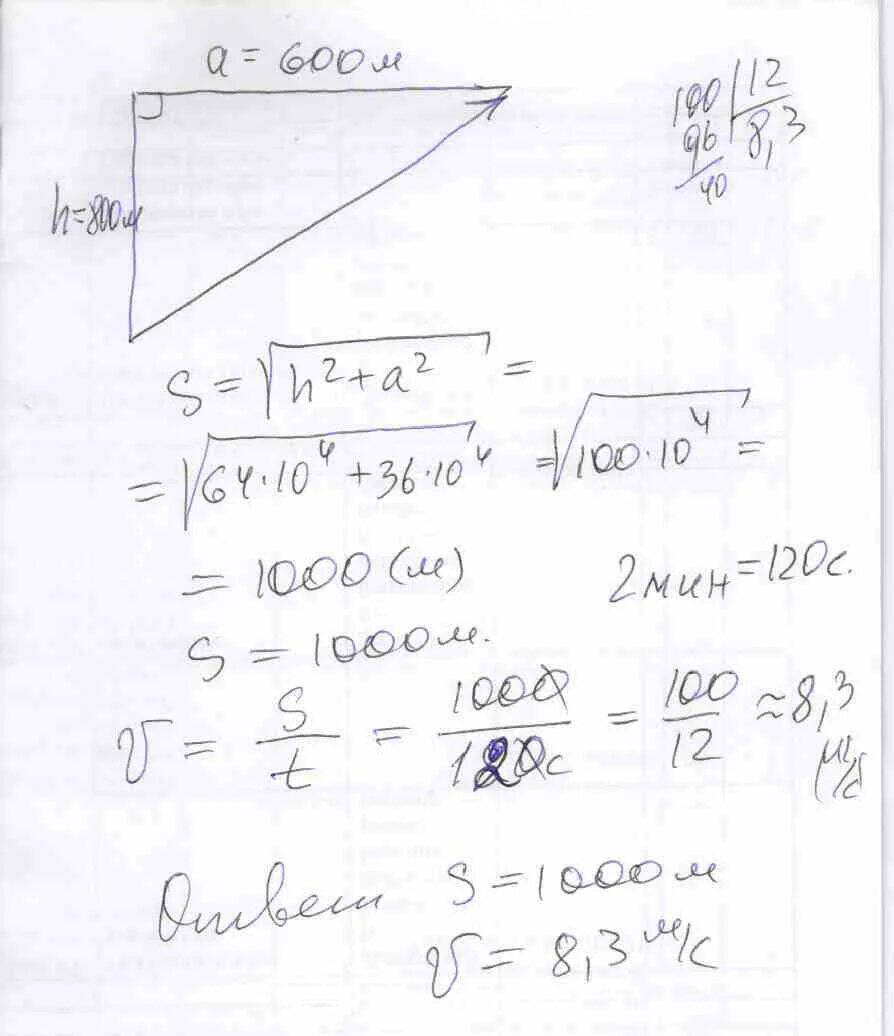 a = 600м
100 | 12
96 | 8,3
40
h=800м
S = √(h² + a²) =
= √(64·10⁴ + 36·10⁴) = √(100·10⁴) =
= 1000 (м)
2 мин = 120 с.
S = 1000 м.
v = S/t = 1000/120с = 100/12 ≈ 8,3 (м/с
Ответ S = 1000 м
v = 8,3 м/с